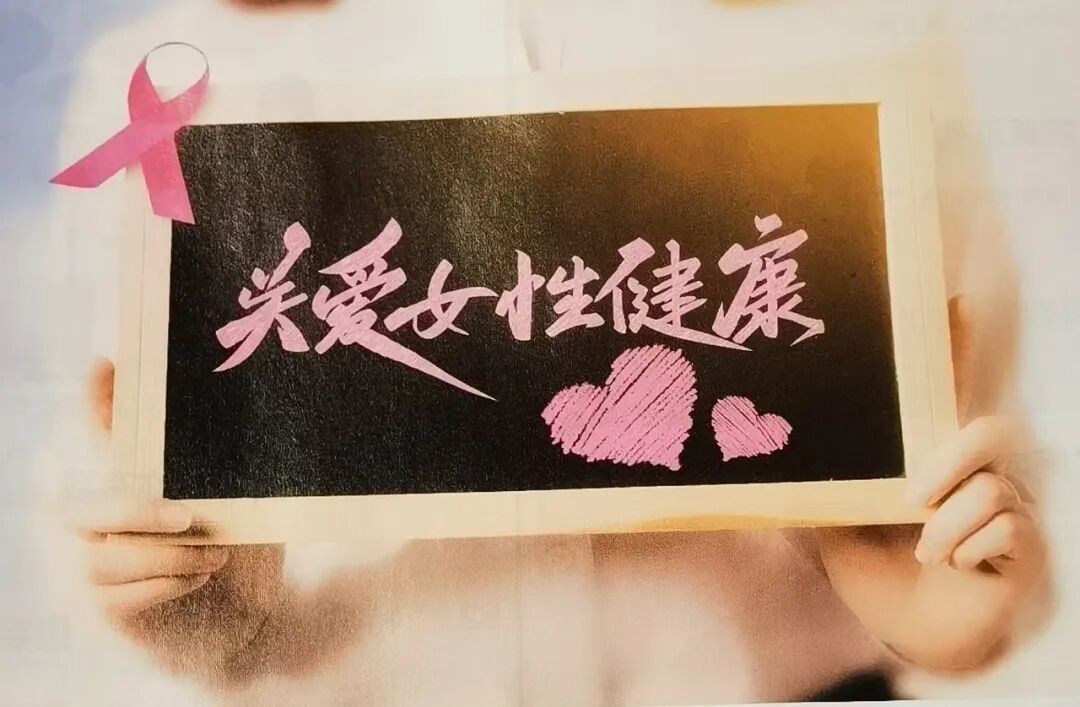 关爱女性健康